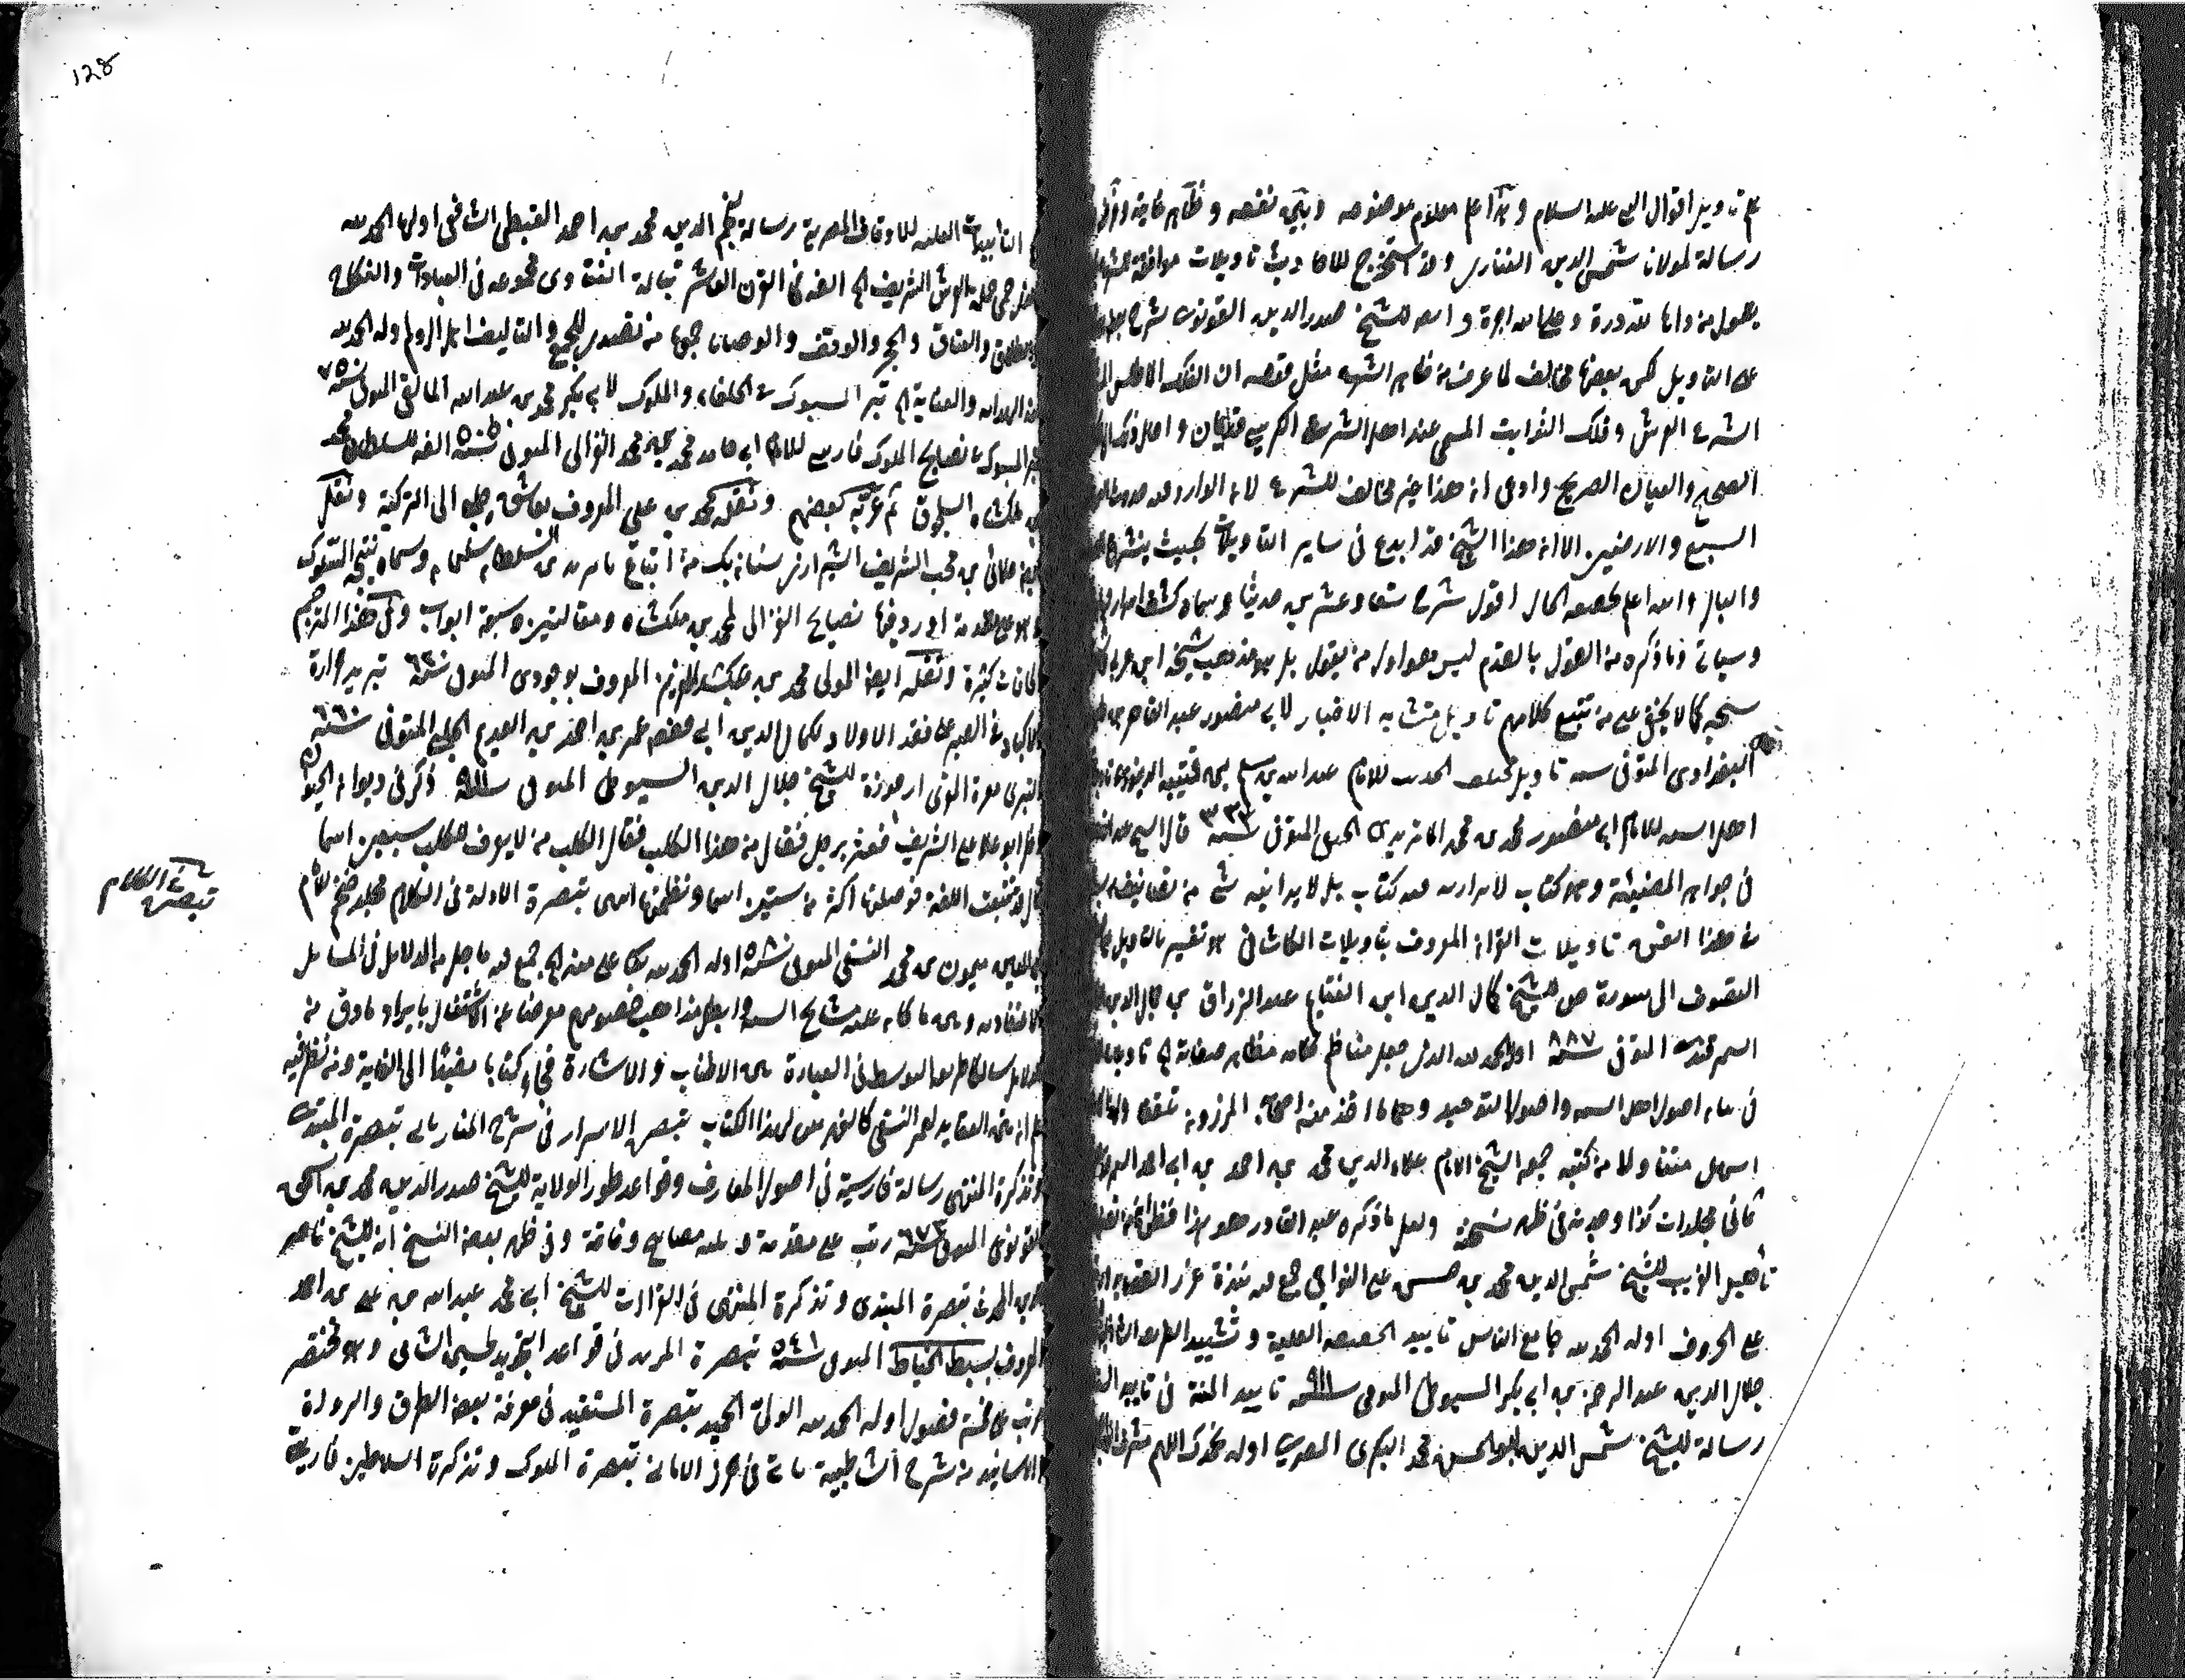 علم تأويل اقوال النبي عليه السلام وهذا علم معلوم موضوعه وبين نفعه وظاهر غايته
رسالة لمولانا شمس الدين الفناري وقد استخرج للاحاديث تاويلات موافقة للشرع
بقول من راها لله دره وعلى الله اجره وايضا للشيخ صدر الدين القونوي شرح
على التاويل لكن بعضها مخالف لما عرف من ظاهر الشرع مثل قوله ان الفلك الاطلس
الشرع العرش وفلك الثوابت المسمى عند اهل الشرع الكرسي قديمان واحال ذلك
الصحيح والعيان الصريح وادعى ان هذا غير مخالف للشرع لان الوارد فيه حدوث
السبع والارضين الا ان هذا الشيخ قد ابدع في ساير التاويلات بحيث ينشرح
والبال والله اعلم بحقيقة الحال اقول شرح تسعا وعشرين حديثا وسماه كشف اسرار
وسياتي وما ذكره من القول بالقدم ليس هو اول من يقول بل هو مذهب شيخه ابن عربي
شيخه كما لا يخفى على من تتبع كلامهم تاويل متشابه الاخبار لابي منصور عبد القاهر بن
البغدادي المتوفى سنة تاويل مختلف الحديث للامام عبد الله بن مسلم بن قتيبة الدينوري
اهل السنة للامام ابي منصور محمد بن محمد الماتريدي الحنفي المتوفى سنة ٣٣٣ قال الشيخ عبد القادر
في جواهر المضيئة وهو كتاب لا يوازيه فيه كتاب بل لا يدانيه شئ من تصانيف
في هذا الفن تاويلات القران المعروف بتاويلات الكاشاني هو تفسير بالتاويل
التصوف الى سورة ص للشيخ كمال الدين ابي الغنايم عبد الرزاق بن جمال الدين
السمرقندي المتوفى سنة ٨٨٧ اوله الحمد لله الذي جعل مناظم كلامه مظاهر صفاته الخ تاويلات
في بيان اصول اهل السنة واصول التوحيد وهو مما اخذ منه اصحابه المبرزون تلقفا ولهذا كان
اسهل متناولا من كتبه جمعه الشيخ الامام علاء الدين محمد بن احمد بن ابي احمد السمرقندي
ثماني مجلدات كذا وجدته في ظهر نسخة ولعل ما ذكره عبد القادر هو هذا
تأهيل الغريب للشيخ شمس الدين محمد بن حسن بن علي النواجي جمع فيه نبذة غرر القصايد
على الحروف اوله الحمد لله جامع الناس تاييد الحقيقة العلية وتشييد الطريقة الشاذلية
جلال الدين عبد الرحمن بن ابي بكر السيوطي المتوفى سنة ٩١١ تاييد المنة في تاييد
رسالة للشيخ شمس الدين ابو الحسن محمد البكري المصري اوله نحمدك اللهم
128
التاييدات العلية للاوقاف المصرية رسالة لنجم الدين محمد بن احمد الغيطي الشافعي اولها الحمد لله
حمى حملة العرش الشريف الخ الفه في القرن العاشر تبالة الفتاوى مجموعه في العبادات والنكاح
والطلاق والعتاق والحجر والوقف والوصايا جمعها من تصدى للجمع والتاليف من اهل الروم اوله الحمد لله
منه الهداية والعناية الخ تبر المسبوك في الخلفاء والملوك لابي بكر محمد بن عبد الله المالقي المتوفى سنة ٧٥٠
تبر المسبوك في نصايح الملوك فارسي للامام ابي حامد محمد بن محمد الغزالي المتوفى سنة ٥٠٥ الفه للسلطان محمد
بن ملكشاه السلجوقي ثم عربه بعضهم ونقله محمد بن علي المعروف بعاشق چلبي الى التركية ونقله
علائي بن محب الشريف الشيرازي لسنان بك من اتباع بايزيد بن السلطان سليمان وسماه نتيجة السلوك
وهو على مقدمة اورد فيها نصايح الغزالي لمحمد بن ملكشاه ومقالتين وسبعة ابواب وفي هذا المترجم
الحاقات كثيرة ونقله ايضا المولى محمد بن عبد العزيز المعروف بوجودي المتوفى سنة تبريد حرارة
الاكباد في الصبر على فقد الاولاد لكمال الدين ابي حفص عمر بن احمد بن العديم الحلبي المتوفى سنة ٦٦٠
التبري من معرة المعري ارجوزة للشيخ جلال الدين السيوطي المتوفى سنة ٩١١ ذكر في ديوان الحيوان
دخل ابو العلا على الشريف فعثر برجل فقال من هذا الكلب فقال الكلب من لا يعرف للكلب سبعين اسما
قال وقد تتبعت اللغة فحصلتها اكثر من ستين اسما ونظمتها انتهى تبصرة الادلة في الكلام مجلد ضخم للامام
ابي المعين ميمون بن محمد النسفي المتوفى سنة ٥٠٨ اوله الحمد لله على منه الخ جمع فيه ما جل من الدلايل في المسايل
الاعتقادية وبين ما كان عليه مشايخ السنة وابطل مذاهب خصومهم معرضا عن الاشتغال بايراد ما دق من
الدلايل سالكا طريقة التوسط في العبارة بين الاطناب والاشارة فجاء كتابا مفيدا الى الغاية ومن نظر فيه
علم ان متن العقايد لعمر النسفي كالفهرس لهذا الكتاب تبصرة الاسرار في شرح المنار ياتي تبصرة المبتدي
وتذكرة المنتهي رسالة فارسية في اصول المعارف وقواعد طور الولاية للشيخ صدر الدين محمد بن اسحق
القونوي المتوفى سنة ٦٧٣ رتب على مقدمة وثلثة مصابيح وخاتمة وفي ظهر بعض النسخ انه للشيخ ناصر
الدين المحدث تبصرة المبتدي وتذكرة المنتهي في القراات للشيخ ابي محمد عبد الله بن علي بن احمد
المعروف بسبط الخياط المتوفى سنة ٥٤١ تبصرة المريد في قواعد التجريد لحسين الشامي وهو مختصر
مرتب على خمسة فصول اوله الحمد لله الولي الحميد تبصرة المستفيد في معرفة بعض الطرق والرواة
والاسانيد من شرح الشاطبية ياتي في حرز الاماني تبصرة الملوك وتذكرة السلاطين فارسية
تبصرة الكلام